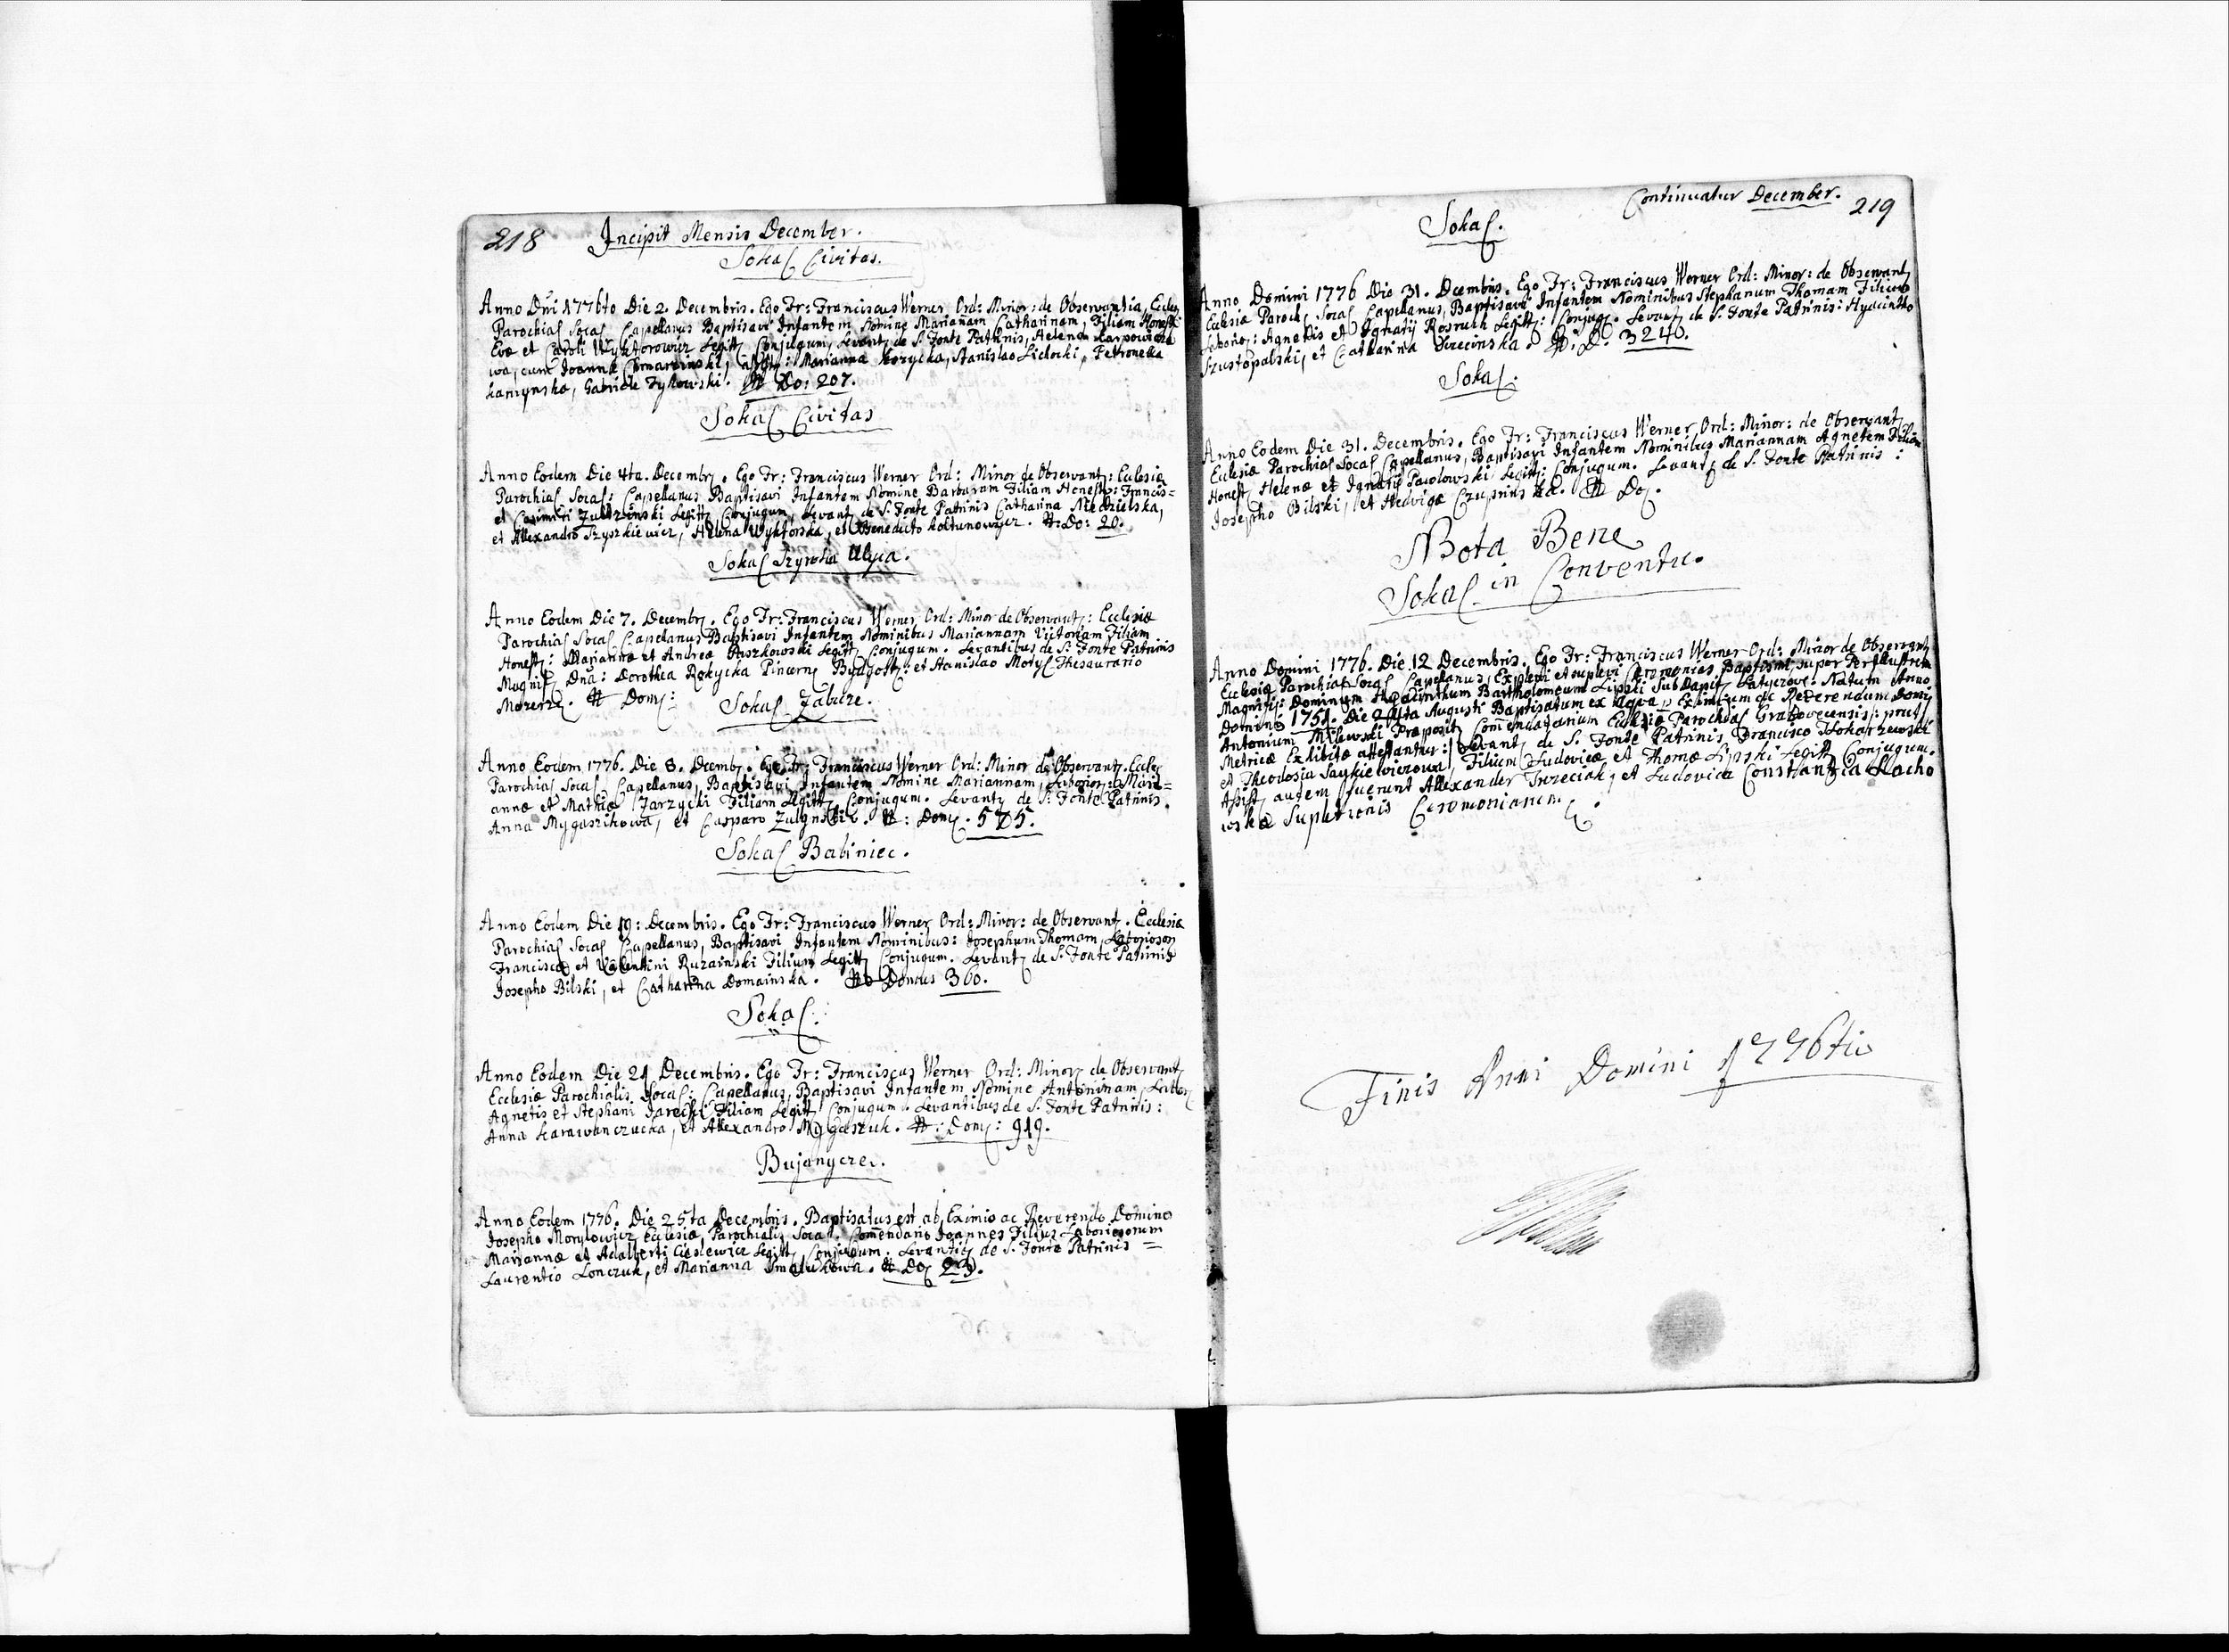 218 Incipit Mensis December.
Sokal Civitas.
Anno Dni 1776to Die 2. Decembris. Ego Fr: Franciscus Werner Ord: Minor: de Observantia, Eccles
Parochial Socal Capellanus Baptisavi Infantem Nomine Mariañam Catharinam, Filiam Honest
Evæ et Caroli Wyktorowicz Legitt Conjugum, Levant de S. Fonte Patrinis, Helena
wa, cum Joanne Assist: Marianna Stanislao Petronella
Gabriele Do: 207.
Sokal Civitas
Anno Eodem Die 4ta. Decembr. Ego Fr: Franciscus Werner Ord: Minor de Observant: Eclesiæ
Parochial Socal: Capellanus Baptisavi Infantem Nomine Barbaram Filiam Honest: Francis=
et Casimiri Legitt Conjugum, Levant de S. Fonte Patrinis Catharina Niedzielska,
et Allexandro Szyszkiewicz, Helena Wyktorska, et Benedicto Koltunowicz. N: Do: 20.
Sokal Szyroka Ulyca.
Anno Eodem Die 7. Decembr. Ego Fr: Franciscus Werner Ord: Minor de Observant: Ecclesiæ
Parochial Socal Capelanus Baptisavi Infantem Nominibus Mariannam Victoriam Filiam
Honest: Mariannæ et Andreæ Paszkowski Legitt Conjugum. Levantibus de S. Fonte Patrinis
Magnif Dña: Dorothea Rokycka Pincern Bydgost: et Stanislao Motyl Thesaurario
N Dom:
Sokal Zabuze.
Anno Eodem 1776. Die 8. Decembr. Ego Fr: Franciscus Werner Ord: Minor de Observant. Eccles
Parochial Socal Capellanus, Baptisavi Infantem Nomine Mariannam, Laborios: Mari=
annæ et Mathiæ Jarzycki Filiam Legitt Conjugum. Levant de S. Fonte Patrinis.
Anna Mygaszikowa, et Casparo N: Dom. 505.
Sokal Babiniec.
Anno Eodem Die 19: Decembris. Ego Fr: Franciscus Werner Ord: Minor: de Observant. Ecclesiæ
Parochial Socal Capellanus, Baptisavi Infantem Nominibus: Josephum Thomam, Laborioson
Franciscæ et Valentini Ruzainski Filium Legitt Conjugum. Levant de S. Fonte Patrinis
Josepho Bilski, et Catharina Domainska. No Domus 360.
Sokal:
Anno Eodem Die 21 Decembris. Ego Fr: Franciscus Werner Ord: Minor de Observant
Ecclesiæ Parochialis Socal: Capellanus, Baptisavi Infantem Nomine Antoninam, Labor
Agnetis et Stephani Jarecki Filiam Legitt Conjugum. Levantibus de S. Fonte Patrinis:
Anna Karawanczucka, et Allexandro Mygaszuk. N: Dom: 919.
Bujanycze.
Anno Eodem 1776. Die 25ta Decembris. Baptisatus est ab Eximio ac Reverendo Domino
Josepho Morylowicz Eclesiæ Parochialis Socal. Comendario Joannes Filius Laboriosorum
Mariannæ et Adalberti Cieslewicz Legitt Conjugum. Levant de S. Fonte Patrinis =
Laurentio Lonczuk, et Marianna N Do 23.
Continuatur December. 219
Sokal.
Anno Domini 1776 Die 31. Decembris. Ego Fr: Franciscus Werner Ord: Minor: de Observant
Eclesiæ Paroch Socal Capellanus, Baptisavi Infantem Nominibus Stephanum Thomam Filium
Labor: Agnetis et Ignatij Legitt: Conjug. Levant de S. Fonte Patrinis: Hyacintho
Szustopalski, et Catharina N. D. 3240.
Sokal:
Anno Eodem Die 31. Decembris. Ego Fr: Franciscus Werner Ord: Minor: de Observant
Eclesiæ Parochial Socal Capellanus, Baptisavi Infantem Nominibus Mariannam Agnetem Filiam
Honest Helenæ et Ignatij Pawlowski Legitt: Conjugum. Levant de S. Fonte Patrinis:
Josepho Bilski, et Hedviga N Do.
Nota Bene
Sokal in Conventu.
Anno Domini 1776. Die 12 Decembris. Ego Fr: Franciscus Werner Ord: Minor de Observant
Eclesiæ Parochial Socal Capelanus, Explevi et suplevi Ceromonias Baptismi, super Perillustrem
Magnif: Dominum Hyacinthum Bartholomeum Lipski SubDapif Latyczov. Natum Anno
Domini 1751. Die 24ta Augusti Baptisatum ex Aqva p Eximium ac Reverendum Domin
Antonium Milewski Præposit Comendatarium Eclesiæ Parochial Grabovecensis: prout
Metricæ Exhibitæ attestantur: Levant de S. Fonte Patrinis Francisco Tokarzewski
et Theodosia Saykiewiczowa, Filium Ludovicæ et Thomæ Lipski Legitt Conjugum.
Assist autem fuerunt Allexander Trzeciak, et Ludovica Constantia Lacho
wska Supletionis Ceromoniarum.
Finis Anni Domini 1776ti